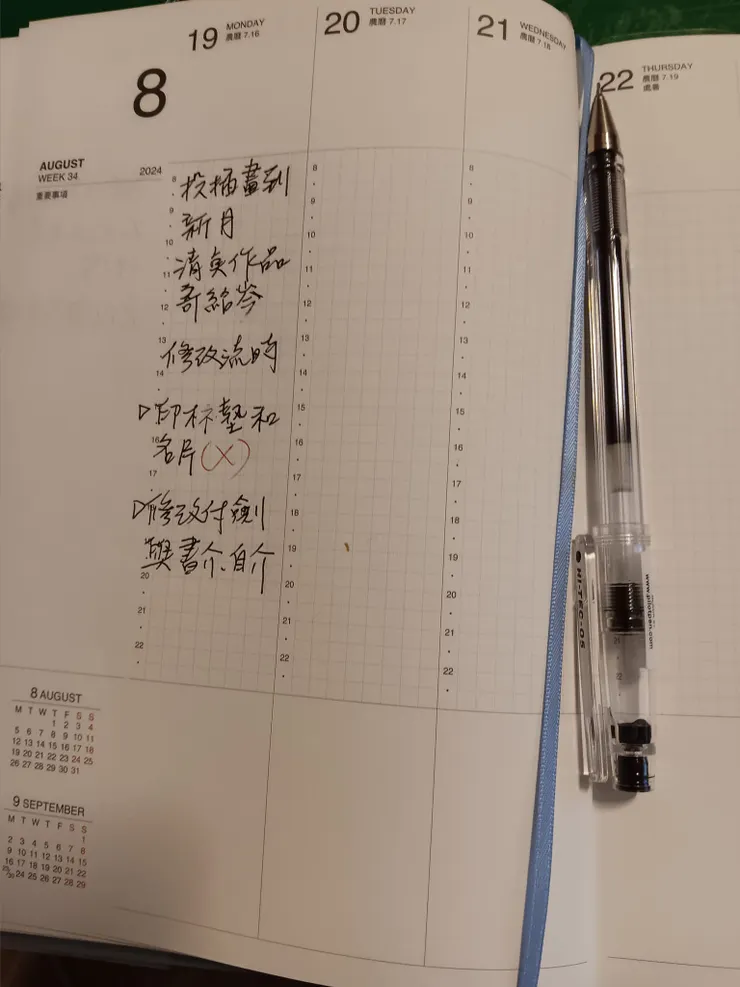 19 MONDAY
農曆 7.16
20 TUESDAY
農曆 7.17
21 WEDNESDAY
農曆 7.18
22 THURSDAY
農曆 7.19
處暑
8
AUGUST
WEEK 34
2024
重要事項
投插畫到
新月
清奐作品
寄給岑
修改流時
▷印杯墊和
名片(X)
▷修改付劍
與書介、自介
8
9
10
11
12
13
14
15
16
17
20
21
22
8
9
10
11
12
13
14
15
16
17
18
19
20
21
22
8
9
10
11
12
13
14
15
16
17
18
19
20
21
22
8 AUGUST
M T W T F S S
1 2 3 4
5 6 7 8 9 10 11
12 13 14 15 16 17 18
19 20 21 22 23 24 25
26 27 28 29 30 31
9 SEPTEMBER
M T W T F S S
1
2 3 4 5 6 7 8
9 10 11 12 13 14 15
16 17 18 19 20 21 22
23/30 24 25 26 27 28 29
HI-TEC-05
www.pilotpen.com